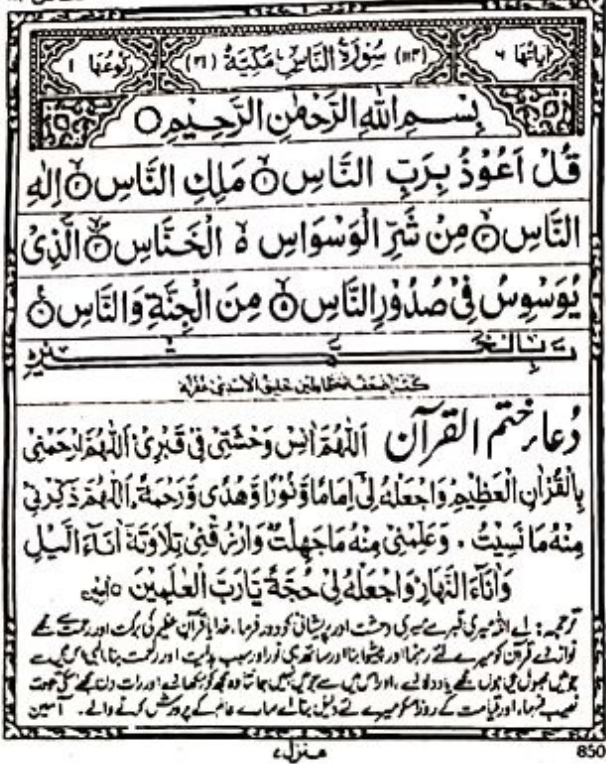 اٰيَاتُهَا ٦ (١١٣) سُوْرَةُ النَّاسِ مَكِّيَّةٌ (٢١) رُكُوْعُهَا ١
بِسْمِ اللّٰهِ الرَّحْمٰنِ الرَّحِيْمِ ○
قُلْ اَعُوْذُ بِرَبِّ النَّاسِ ۙ۱ مَلِكِ النَّاسِ ۙ۲ اِلٰهِ
النَّاسِ ۙ۳ مِنْ شَرِّ الْوَسْوَاسِ ۵ الْخَنَّاسِ ۪ۙ۴ الَّذِىْ
يُوَسْوِسُ فِىْ صُدُوْرِ النَّاسِ ۙ۵ مِنَ الْجِنَّةِ وَالنَّاسِ ۶
دعاء ختم القرآن اَللّٰهُمَّ اٰنِسْ وَحْشَتِىْ فِىْ قَبْرِىْ اَللّٰهُمَّ ارْحَمْنِىْ
بِالْقُرْاٰنِ الْعَظِيْمِ وَاجْعَلْهُ لِىْٓ اِمَامًا وَّنُوْرًا وَّهُدًى وَّرَحْمَةً اَللّٰهُمَّ ذَكِّرْنِىْ
مِنْهُ مَا نَسِيْتُ ۔ وَعَلِّمْنِىْ مِنْهُ مَا جَهِلْتُ وَارْزُقْنِىْ تِلَاوَتَهٗ اٰنَآءَ الَّيْلِ
وَاٰنَآءَ النَّهَارِ وَاجْعَلْهُ لِىْ حُجَّةً يَّا رَبَّ الْعٰلَمِيْنَ ○ اٰمين
ترجمہ: اے اللہ میری قبر سے میری وحشت اور پریشانی کو دور فرما، خدایا قرآن عظیم کی برکت اور رحمت سے مجھے
نواز دے قرآن کو میرے لئے رہنما اور پیشوا بنا اور ساتھ ہی نور اور سبب ہدایت اور رحمت بنا، الٰہی اس میں سے
جو میں بھول گیا ہوں مجھے یاد دلا دے، اور اس میں سے جو میں نہیں جانتا وہ مجھ کو سکھا دے اور رات دن مجھے اسکی
نصیب فرما، اور قیامت کے روز اسکو میرے لئے دلیل بنا اے سارے عالم کے پرورش کرنے والے۔ آمین
منزل ۷
850